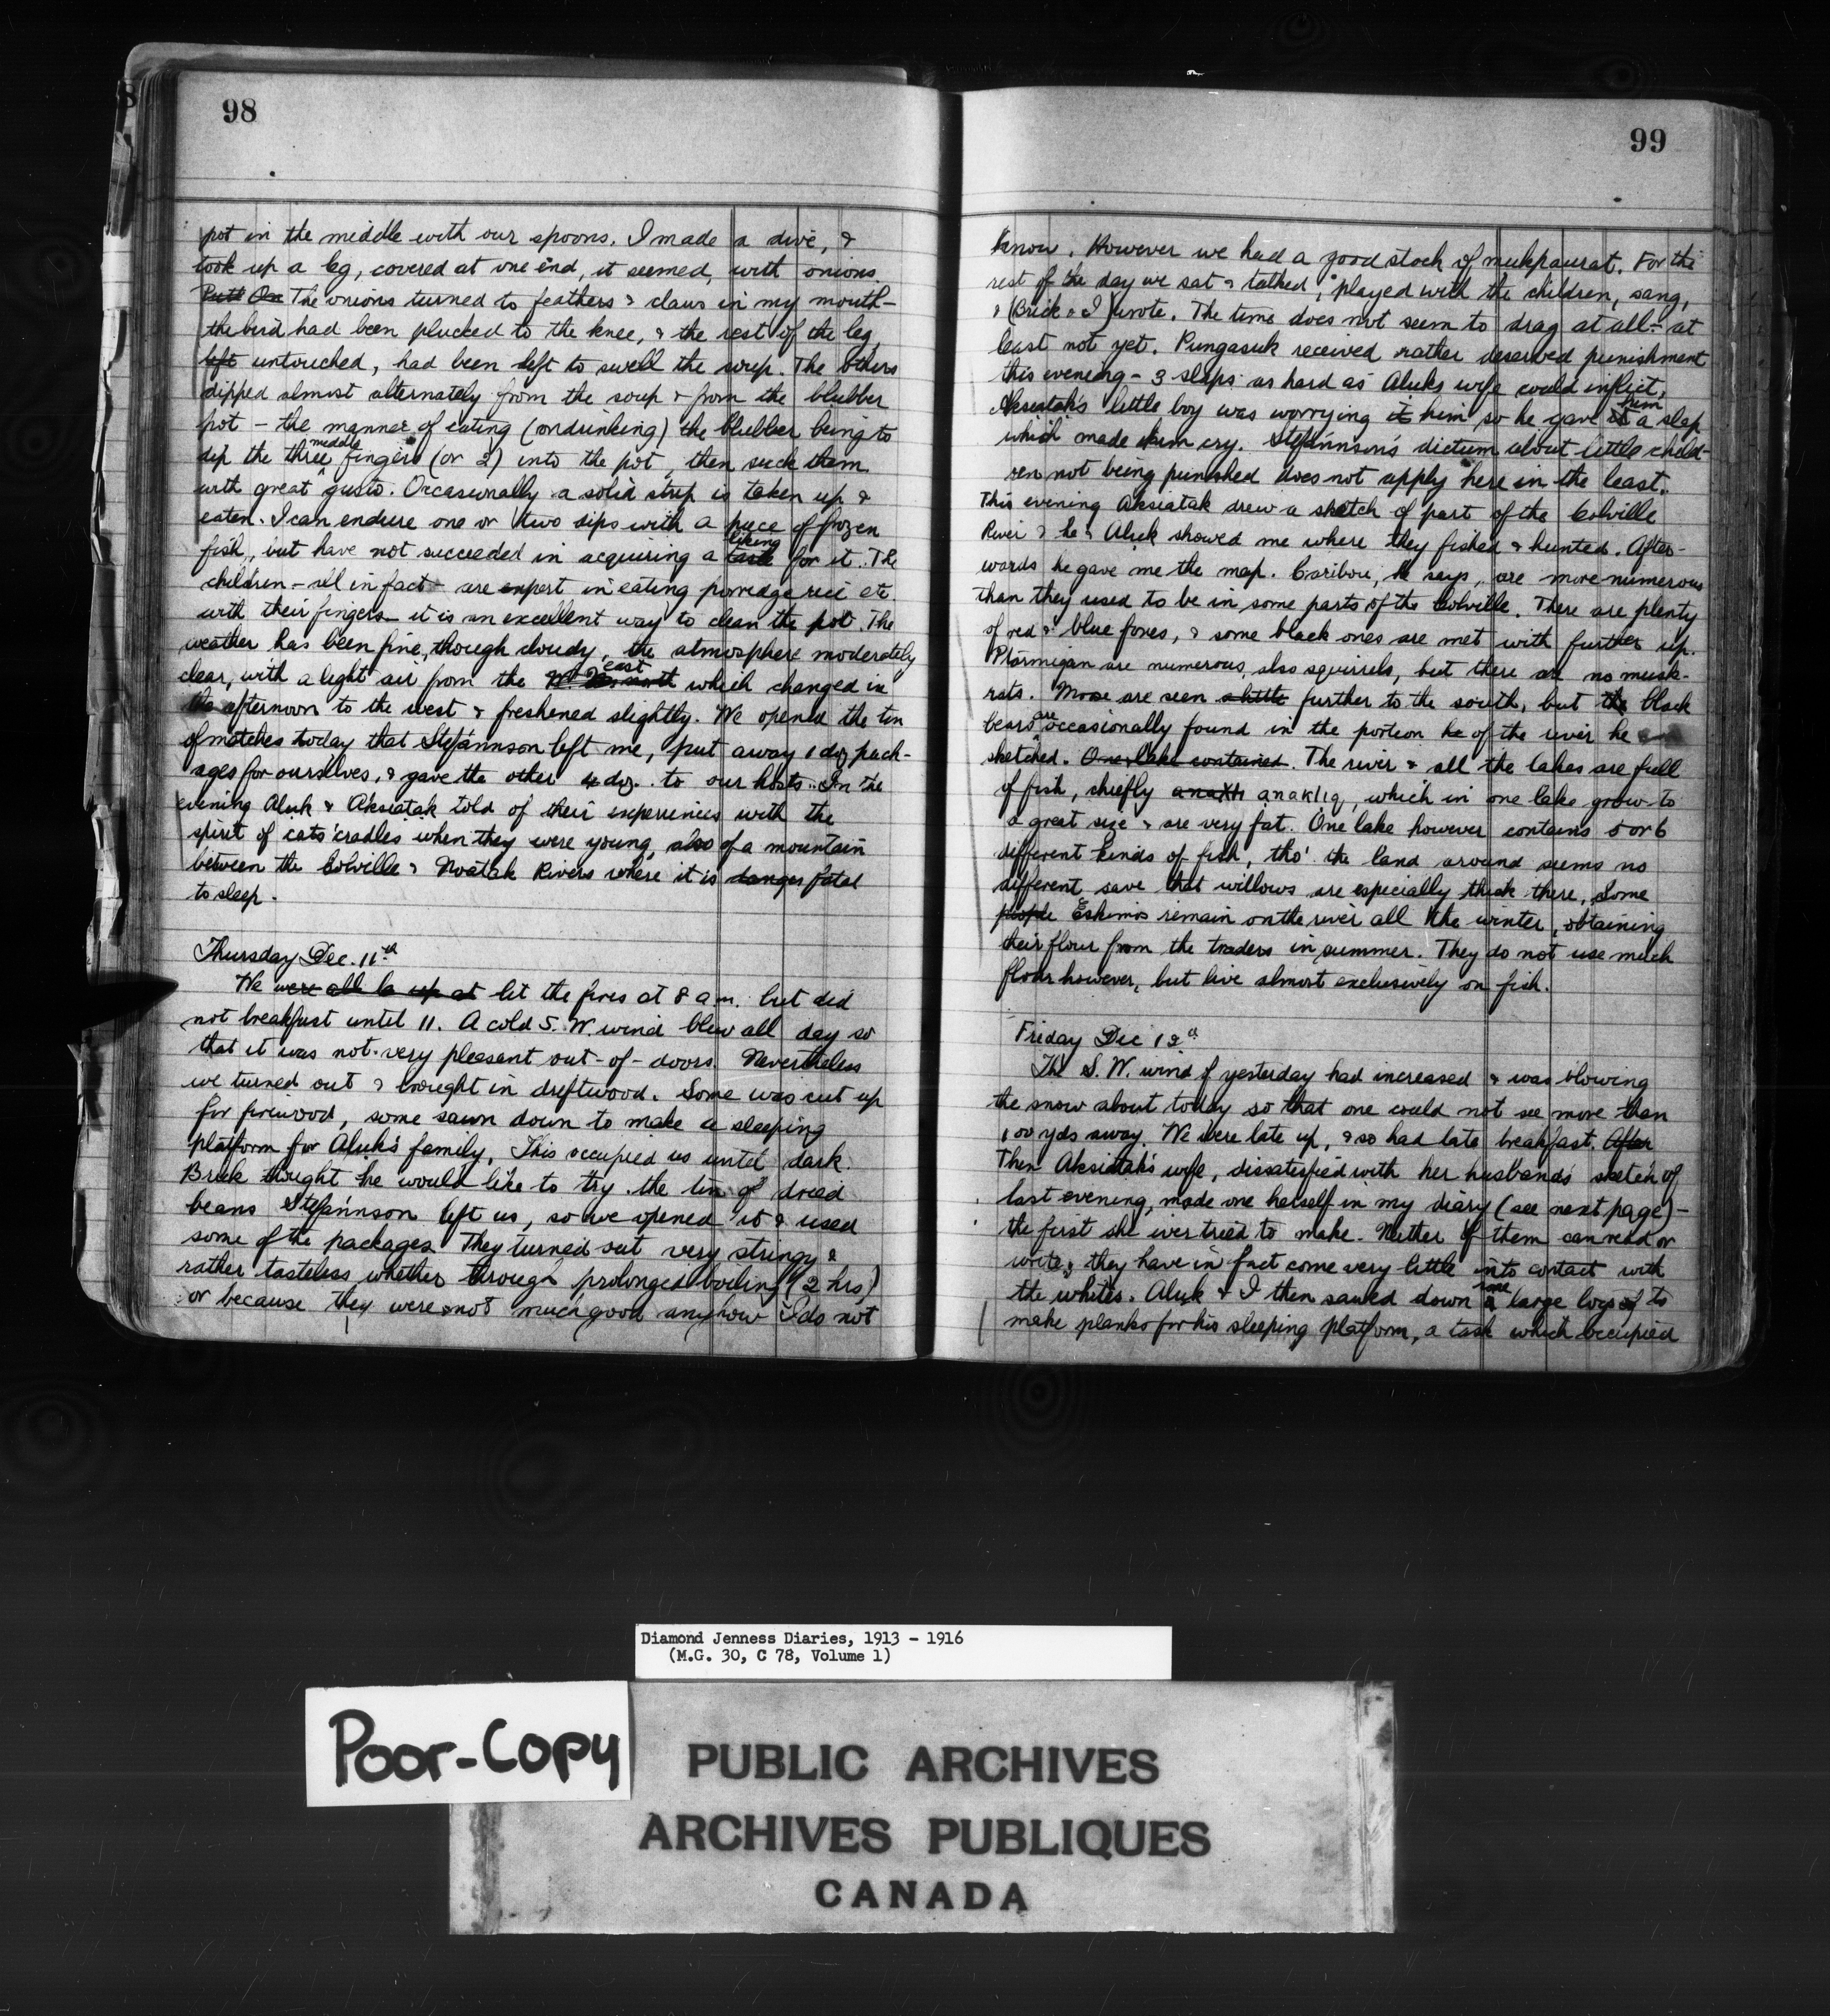 98
pot in the middle with our spoons. I made a dive, &
took up a leg, covered at one end, it seemed, with onions
The onions turned to feathers & claws in my mouth -
the bird had been plucked to the knee, & the rest of the leg,
left untouched, had been left to swell the soup. The others
dipped almost alternately from the soup & from the blubber
pot - the manner of eating (or drinking) the blubber being to
dip the three middle fingers (or 2) into the pot, then suck them
with great gusto. Occasionally a solid strip is taken up &
eaten. I can endure one or two dips with a piece of frozen
fish, but have not succeeded in acquiring a taste liking for it. The
children - all in fact - are expert in eating porridge rice etc.
with their fingers - it is an excellent way to clean the pot. The
weather has been fine, though cloudy, the atmosphere moderately
clear, with a light air from the east which changed in
the afternoon to the west & freshened slightly. We opened the tin
of matches today that Stefánnson left me, put away 1 doz pack-
ages for ourselves, & gave the other 4 doz. to our hosts. In the
evening Aluk & Aksiatak told of their experiences with the
spirit of cats' cradles when they were young, also of a mountain
between the Colville & Noatak Rivers where it is danger fatal
to sleep.
Thursday Dec. 11th
We were all up at lit the fires at 8 a m. but did
not breakfast until 11. A cold S. W. wind blew all day so
that it was not very pleasant out-of-doors. Nevertheless
we turned out & brought in driftwood. Some was cut up
for firewood, some sawn down to make a sleeping
platform for Aluk's family. This occupied us until dark.
Brick thought he would like to try the tin of dried
beans Stefánnson left us, so we opened it & used
some of the packages. They turned out very stringy &
rather tasteless whether through prolonged boiling (2 hrs)
or because they were not much good anyhow I do not
99
know. However we had a good stock of mukpaurat. For the
rest of the day we sat & talked, played with the children, sang,
& (Brick & I) wrote. The time does not seem to drag at all - at
least not yet. Pungasuk received rather deserved punishment
this evening - 3 slaps as hard as Aluk's wife could inflict.
Aksiatak's little boy was worrying it him so he gave it him a slap
which made him cry. Stefánnson's dictum about little child-
ren not being punished does not apply here in the least.
This evening Aksiatak drew a sketch of part of the Colville
River & he & Aluk showed me where they fished & hunted. After-
wards he gave me the map. Caribou, he says, are more numerous
than they used to be in some parts of the Colville. There are plenty
of red & blue foxes, & some black ones are met with further up.
Ptarmigan are numerous, also squirrels, but there are no musk-
rats. Moose are seen a little further to the south, but the black
bears are occasionally found in the portion he of the river he
sketched. One lake contained. The river & all the lakes are full
of fish, chiefly anaklıq, which in one lake grow to
a great size & are very fat. One lake however contains 5 or 6
different kinds of fish, tho' the land around seems no
different save that willows are especially thick there. Some
people Eskimos remain on the river all the winter, obtaining
their flour from the traders in summer. They do not use much
flour however, but live almost exclusively on fish.
Friday Dec 12th
The S. W. wind of yesterday had increased & was blowing
the snow about today so that one could not see more than
100 yds away. We were late up, & so had late breakfast. After
Then Aksiatak's wife, dissatisfied with her husband's sketch of
last evening, made one herself in my diary (see next page) -
the first she ever tried to make. Neither of them can read or
write, they have in fact come very little into contact with
the whites. Aluk & I then sawed down a some large logs of to
make planks for his sleeping platform, a task which occupied
Diamond Jenness Diaries, 1913 - 1916
(M.G. 30, C 78, Volume 1)
Poor-Copy
PUBLIC ARCHIVES
ARCHIVES PUBLIQUES
CANADA